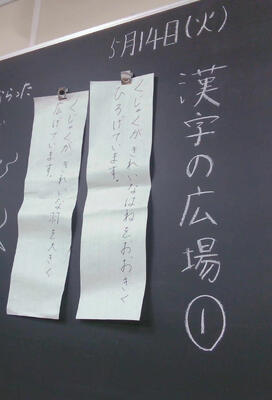 5月14日(火)
漢字の広場①
くじゃくがきれいなはねをおおきく
ひろげています。
くじゃくがきれいな羽を大きく
広げています。